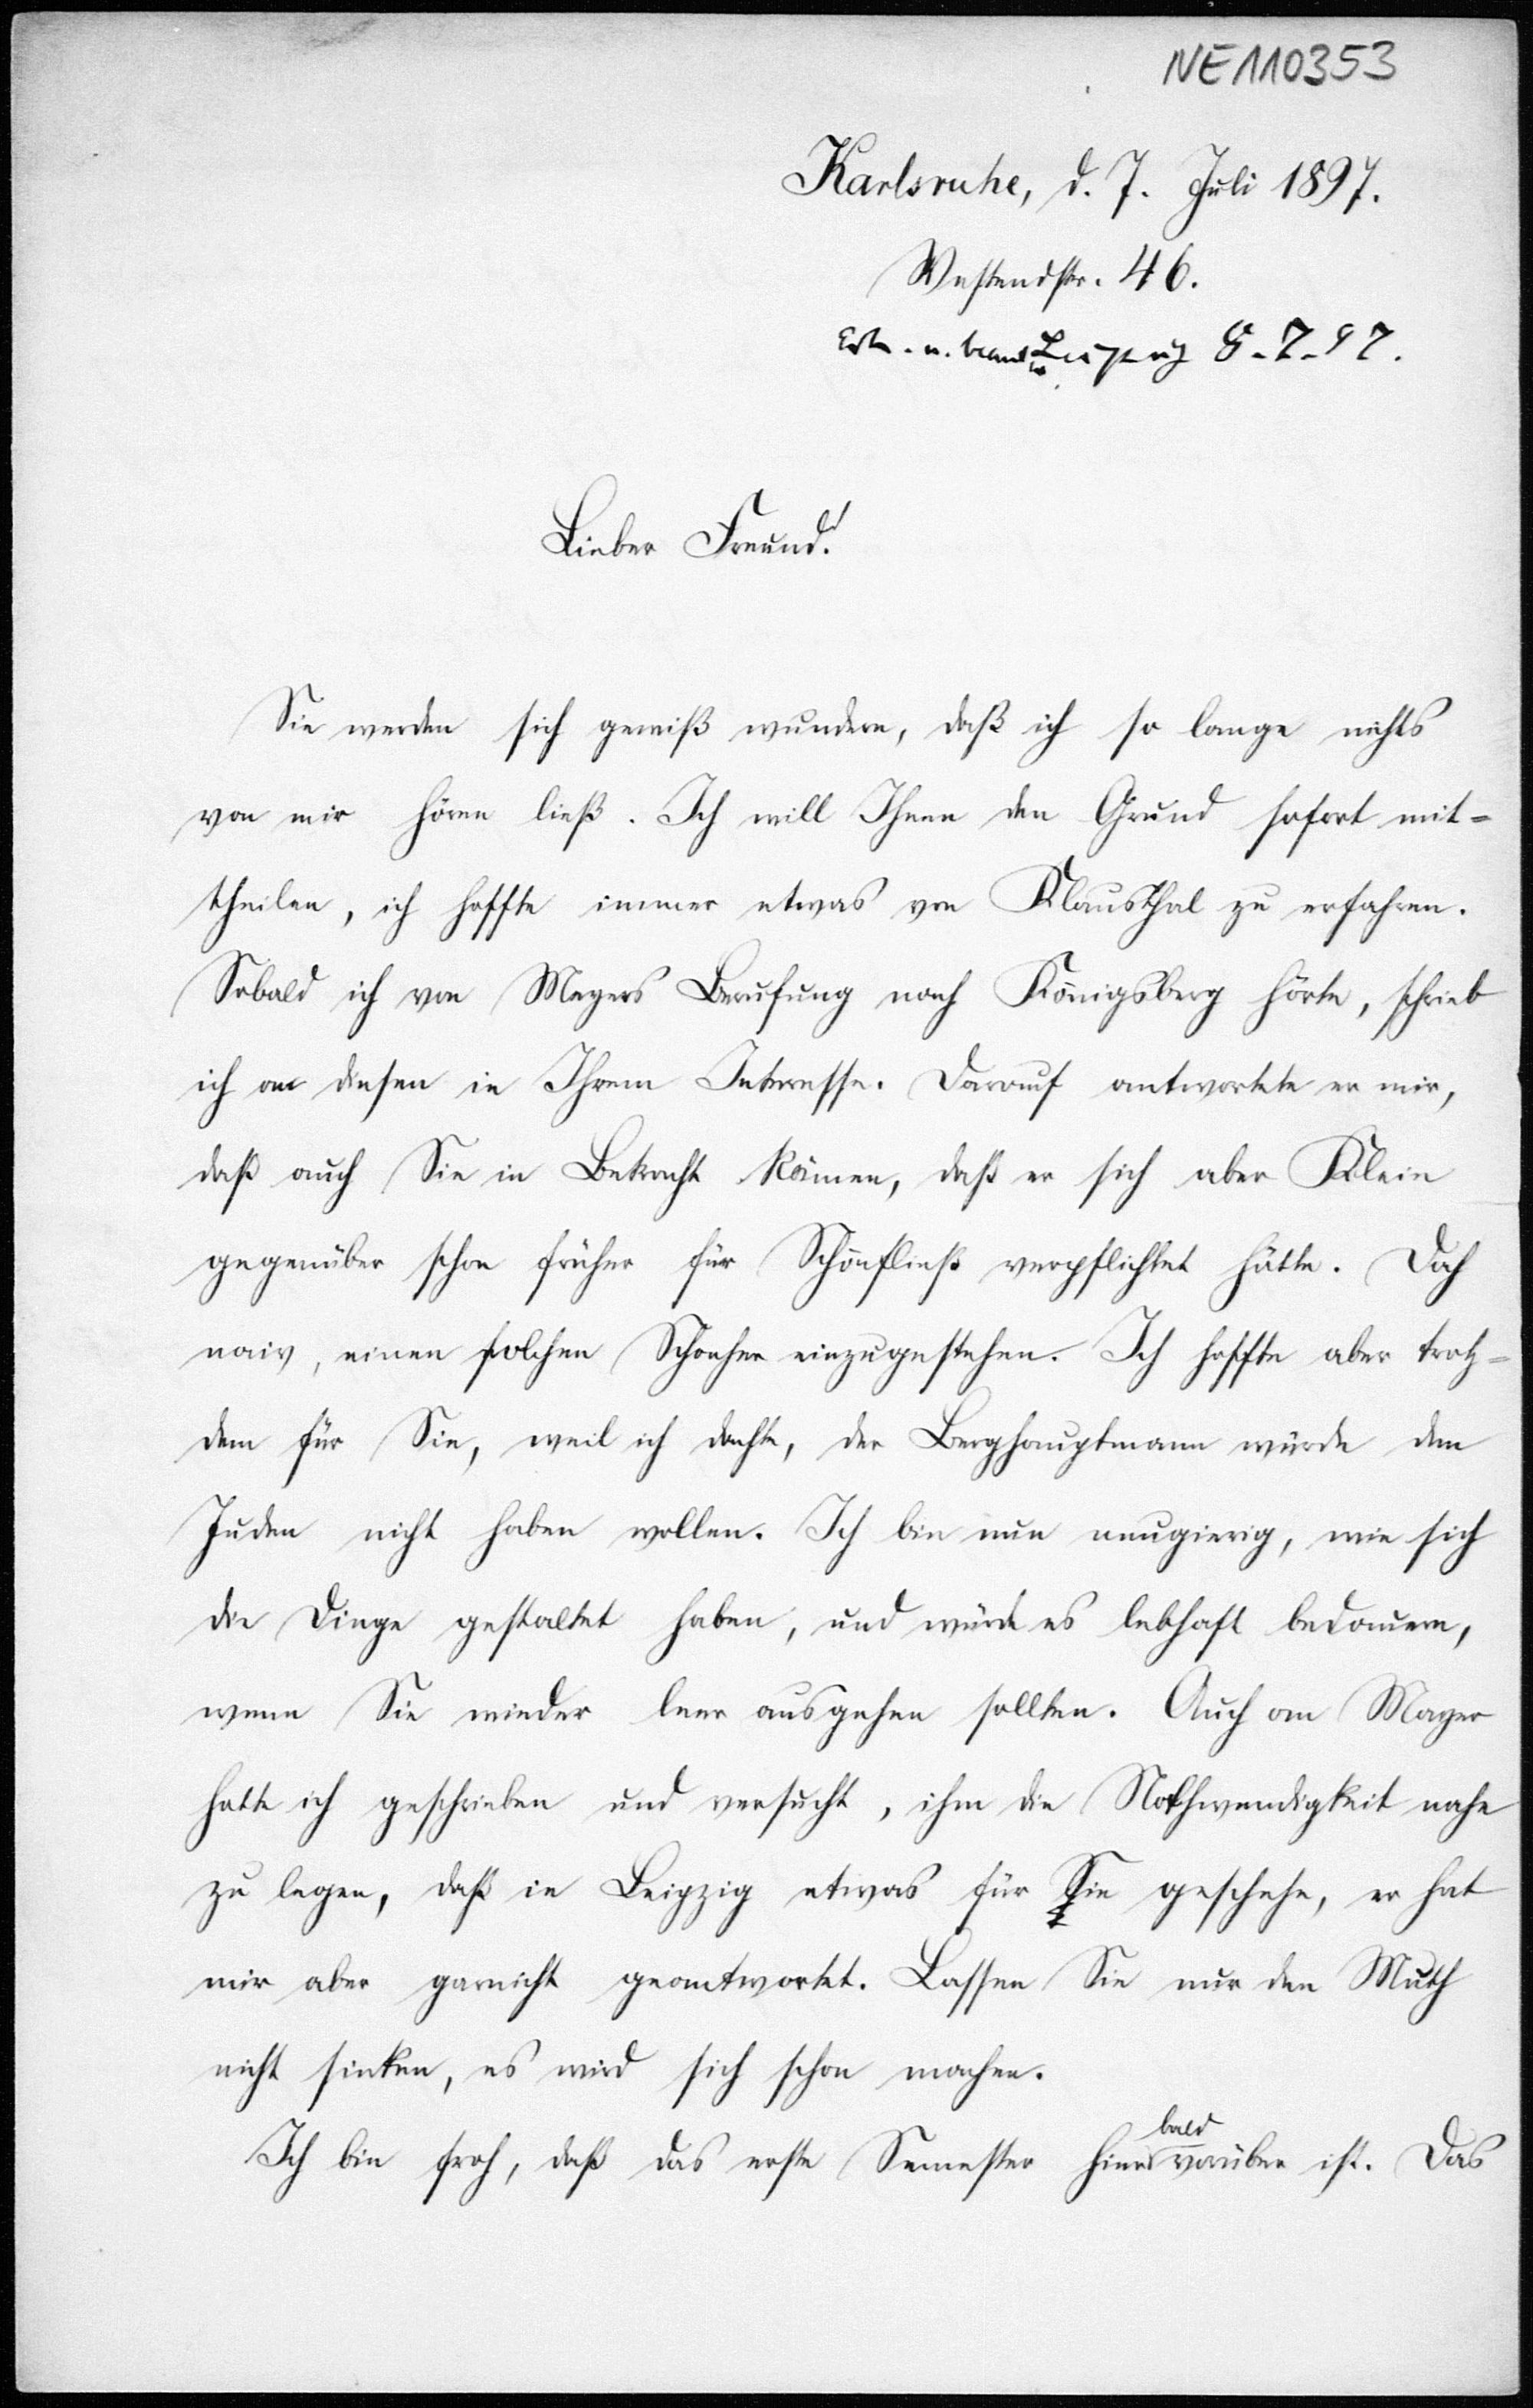 NE110353
Karlsruhe, d. 7. Juli 1897.
Westendstr. 46.
Erh. u. beant. Leipzig 8-7-97.
Lieber Freund!
Sie werden sich gewiß wundern, daß ich so lange nichts
von mir hören ließ. Ich will Ihnen den Grund sofort mit-
theilen, ich hoffte immer etwas von Klausthal zu erfahren.
Sobald ich von Meyers Berufung nach Königsberg hörte, schrieb
ich an diesen in Ihrem Interesse. Darauf antwortete er mir,
daß auch Sie in Betracht kämen, daß er sich aber Klein
gegenüber schon früher für Schönfließ verpflichtet hätte. Doch
naiv, einen solchen Schacher einzugestehen. Ich hoffte aber trotz-
dem für Sie, weil ich dachte, der Berghauptmann würde den
Juden nicht haben wollen. Ich bin nun neugierig, wie sich
die Dinge gestaltet haben, und würde es lebhaft bedauern,
wenn Sie wieder leer ausgehen sollten. Auch an Mayer
hatte ich geschrieben und versucht, ihm die Nothwendigkeit nahe
zu legen, daß in Leipzig etwas für Sie geschehe, er hat
mir aber garnicht geantwortet. Lassen Sie nur den Muth
nicht sinken, es wird sich schon machen.
Ich bin froh, daß das erste Semester hier bald vorüber ist. Das